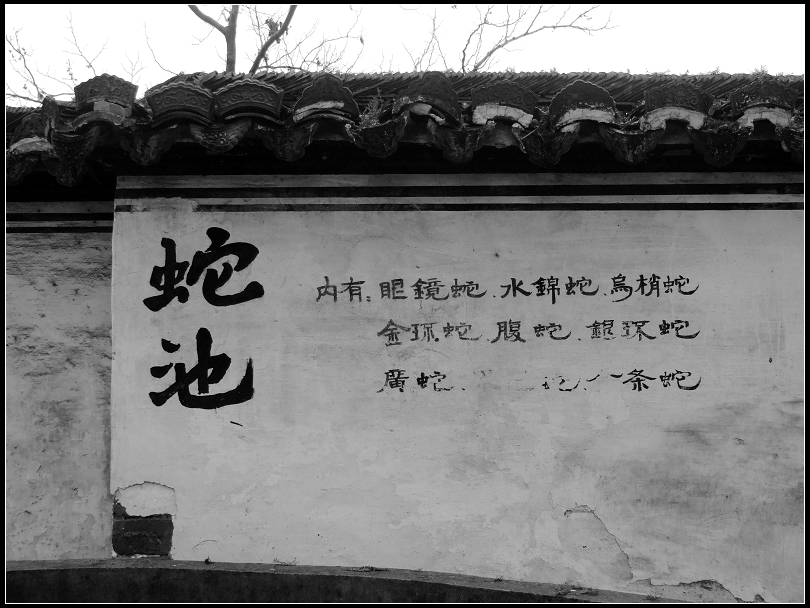 蛇池
内有:眼鏡蛇.水錦蛇.烏梢蛇
金环蛇.腹蛇.銀环蛇
廣蛇.蛇.八条蛇